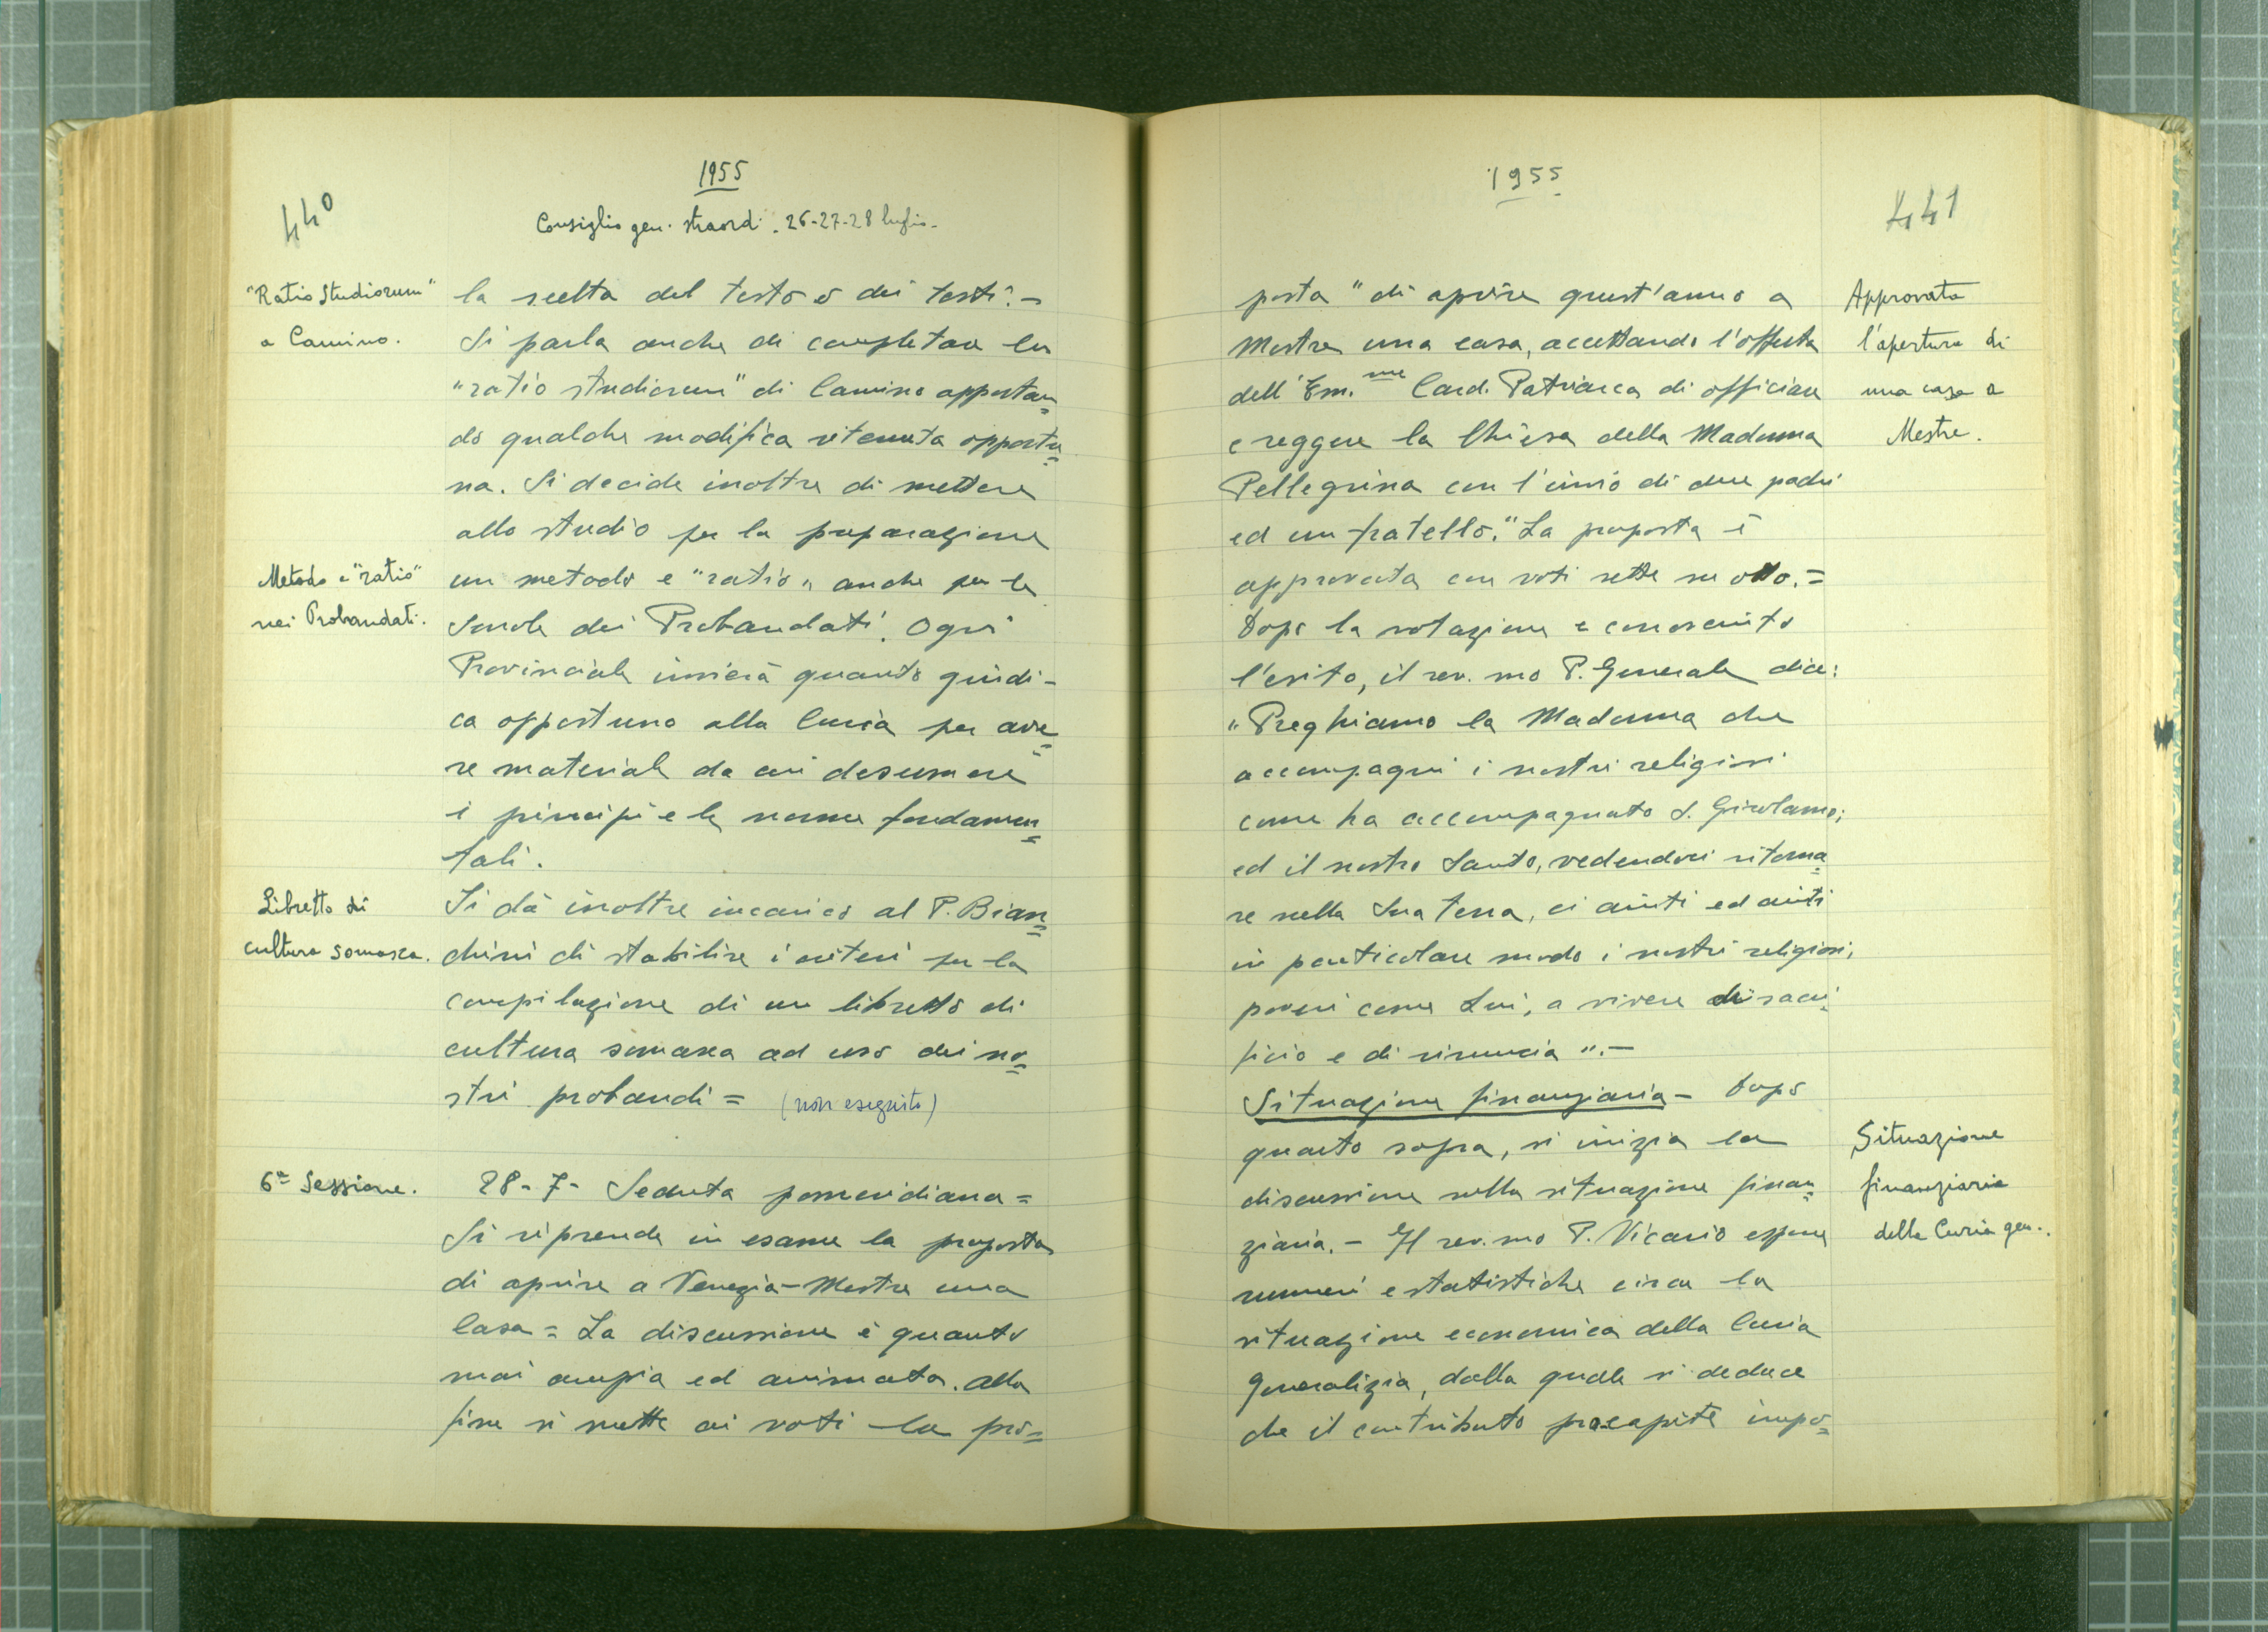 440
1955
Consiglio gen. straord. 26-27-28 luglio.
"Ratio Studiorum"
a Camino.
la scelta del testo o dei testi.-
Si parla anche di completare la
"ratio studiorum" di Camino apportan=
do qualche modifica ritenuta opportu=
na. Si decide inoltre di mettere
allo studio per la preparazione
Metodo e "ratio"
nei Probandati.
un metodo e "ratio" anche per le
Scuole dei Probandati. Ogni
Provinciale invierà quanto giudi-
ca opportuno alla Curia per ave=
re materiale da cui desumere
i principi e le norme fondamen=
tali.
Libretto di
cultura somasca.
Si dà inoltre incarico al P. Bian=
chini di stabilire i criteri per la
compilazione di un libretto di
cultura somasca ad uso dei no=
stri probandi = (non eseguito)
6ª Sessione.
28-7- Seduta pomeridiana =
Si riprende in esame la proposta
di aprire a Venezia-Mestre una
Casa = La discussione è quanto
mai ampia ed animata. Alla
fine si mette ai voti la pro=
1955
441
posta "di aprire quest'anno a
Mestre una casa, accettando l'offerta
dell'Em.mo Card. Patriarca di officiare
e reggere la Chiesa della Madonna
Pellegrina con l'invio di due padri
ed un fratello." La proposta è
approvata con voti sette su otto.=
Dopo la votazione e conosciuto
l'esito, il rev.mo P. Generale dice:
"Preghiamo la Madonna che
accompagni i nostri religiosi
come ha accompagnato S. Girolamo;
ed il nostro Santo, vedendoci ritorna=
re nella Sua terra, ci aiuti ed aiuti
in particolare modo i nostri religiosi,
poveri come Lui, a vivere di sacri=
ficio e di rinuncia".-
Approvata
l'apertura di
una casa a
Mestre.
Situazione finanziaria - Dopo
quanto sopra, si inizia la
discussione sulla situazione finan=
ziaria.- Il rev.mo P. Vicario espone
numeri e statistiche circa la
situazione economica della Curia
Generalizia, dalla quale si deduce
che il contributo pro capite impo=
Situazione
finanziaria
della Curia gen..